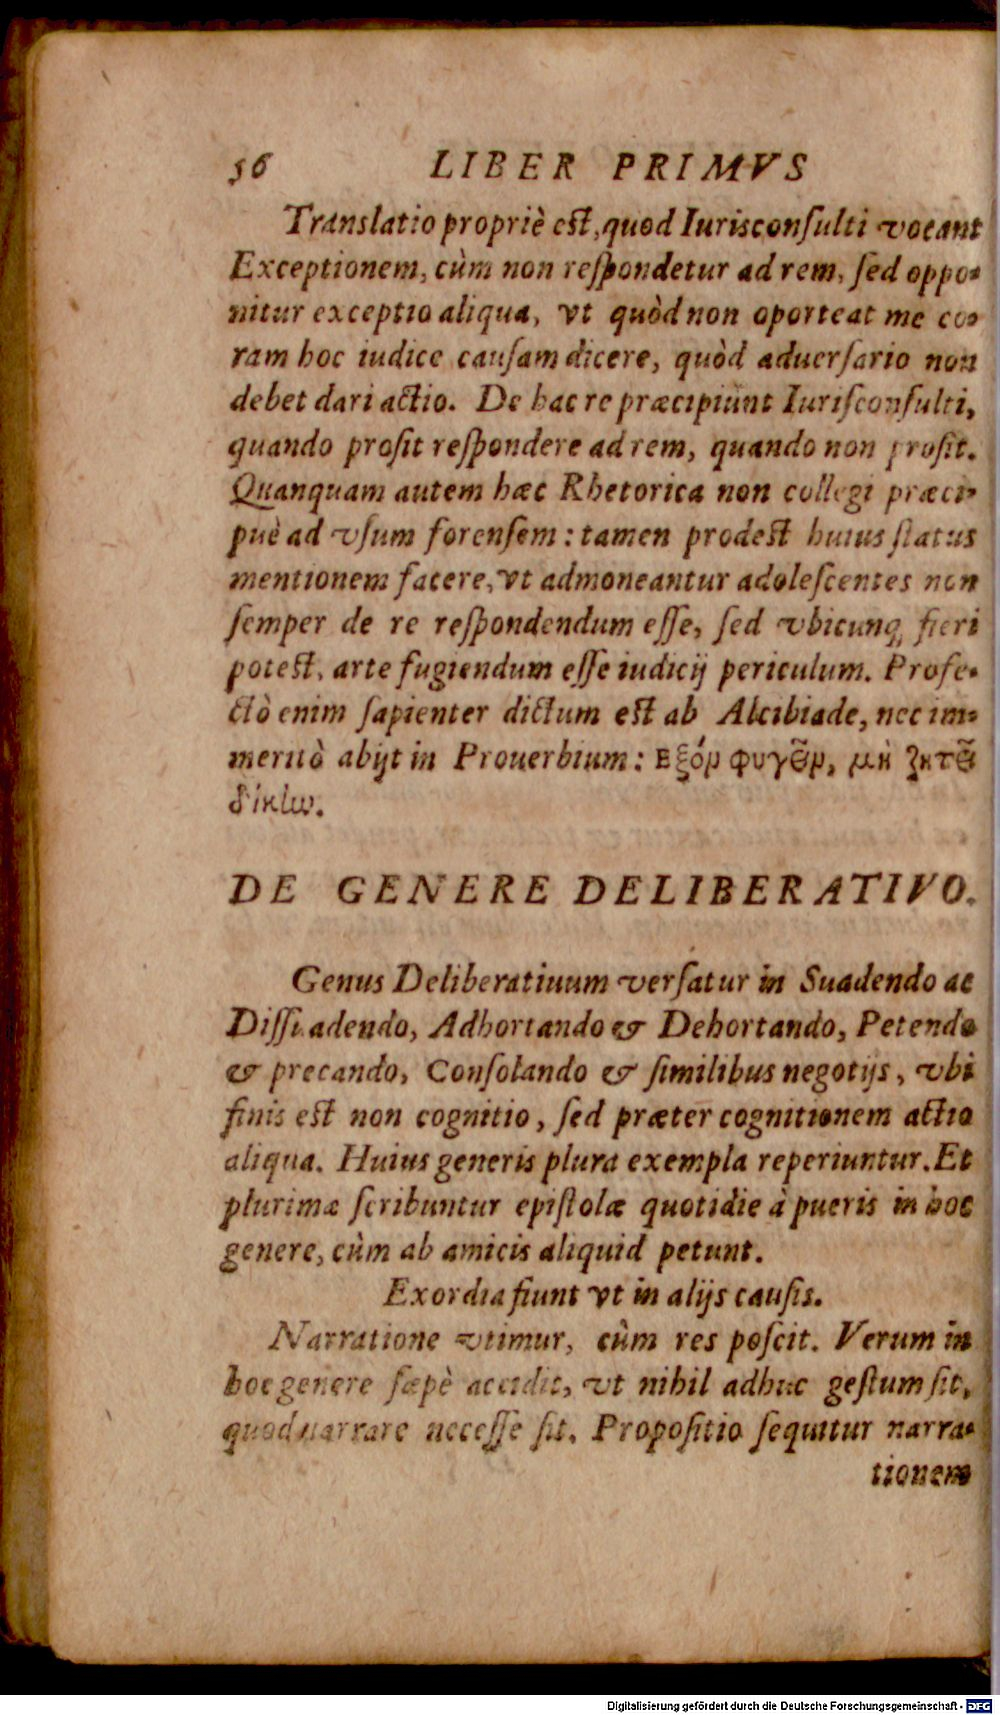 56 LIBER PRIMVS
Translatio propriè est, quod Iurisconſulti vocant
Exceptionem, cùm non reſpondetur ad rem, ſed oppo-
nitur exceptio aliqua, vt quòd non oporteat me co-
ram hoc iudice cauſam dicere, quòd aduerſario non
debet dari actio. De hac re præcipiunt Iuriſconſulti,
quando proſit reſpondere ad rem, quando non proſit.
Quanquam autem hæc Rhetorica non collegi præci-
puè ad vſum forenſem: tamen prodest huius ſtatus
mentionem facere, vt admoneantur adoleſcentes non
ſemper de re reſpondendum eſſe, ſed vbicunq; fieri
potest, arte fugiendum eſſe iudicij periculum. Profe-
ctò enim ſapienter dictum est ab Alcibiade, nec im-
meritò abijt in Prouerbium: Εξόν φυγεῖν, μὴ ζητεῖ
δίκω.
DE GENERE DELIBERATIVO.
Genus Deliberatiuum verſatur in Suadendo ac
Diſſuadendo, Adhortando & Dehortando, Petendo
& precando, Conſolando & ſimilibus negotijs, vbi
finis est non cognitio, ſed præter cognitionem actio
aliqua. Huius generis plura exempla reperiuntur. Et
plurimæ ſcribuntur epiſtolæ quotidie à pueris in hoc
genere, cùm ab amicis aliquid petunt.
Exordia fiunt vt in alijs cauſis.
Narratione vtimur, cùm res poſcit. Verum in
hoc genere ſæpè accidit, vt nihil adhuc geſtum ſit,
quod narrare neceſſe ſit. Propoſitio ſequitur narra-
tionem
Digitalisierung gefördert durch die Deutsche Forschungsgemeinschaft - DFG